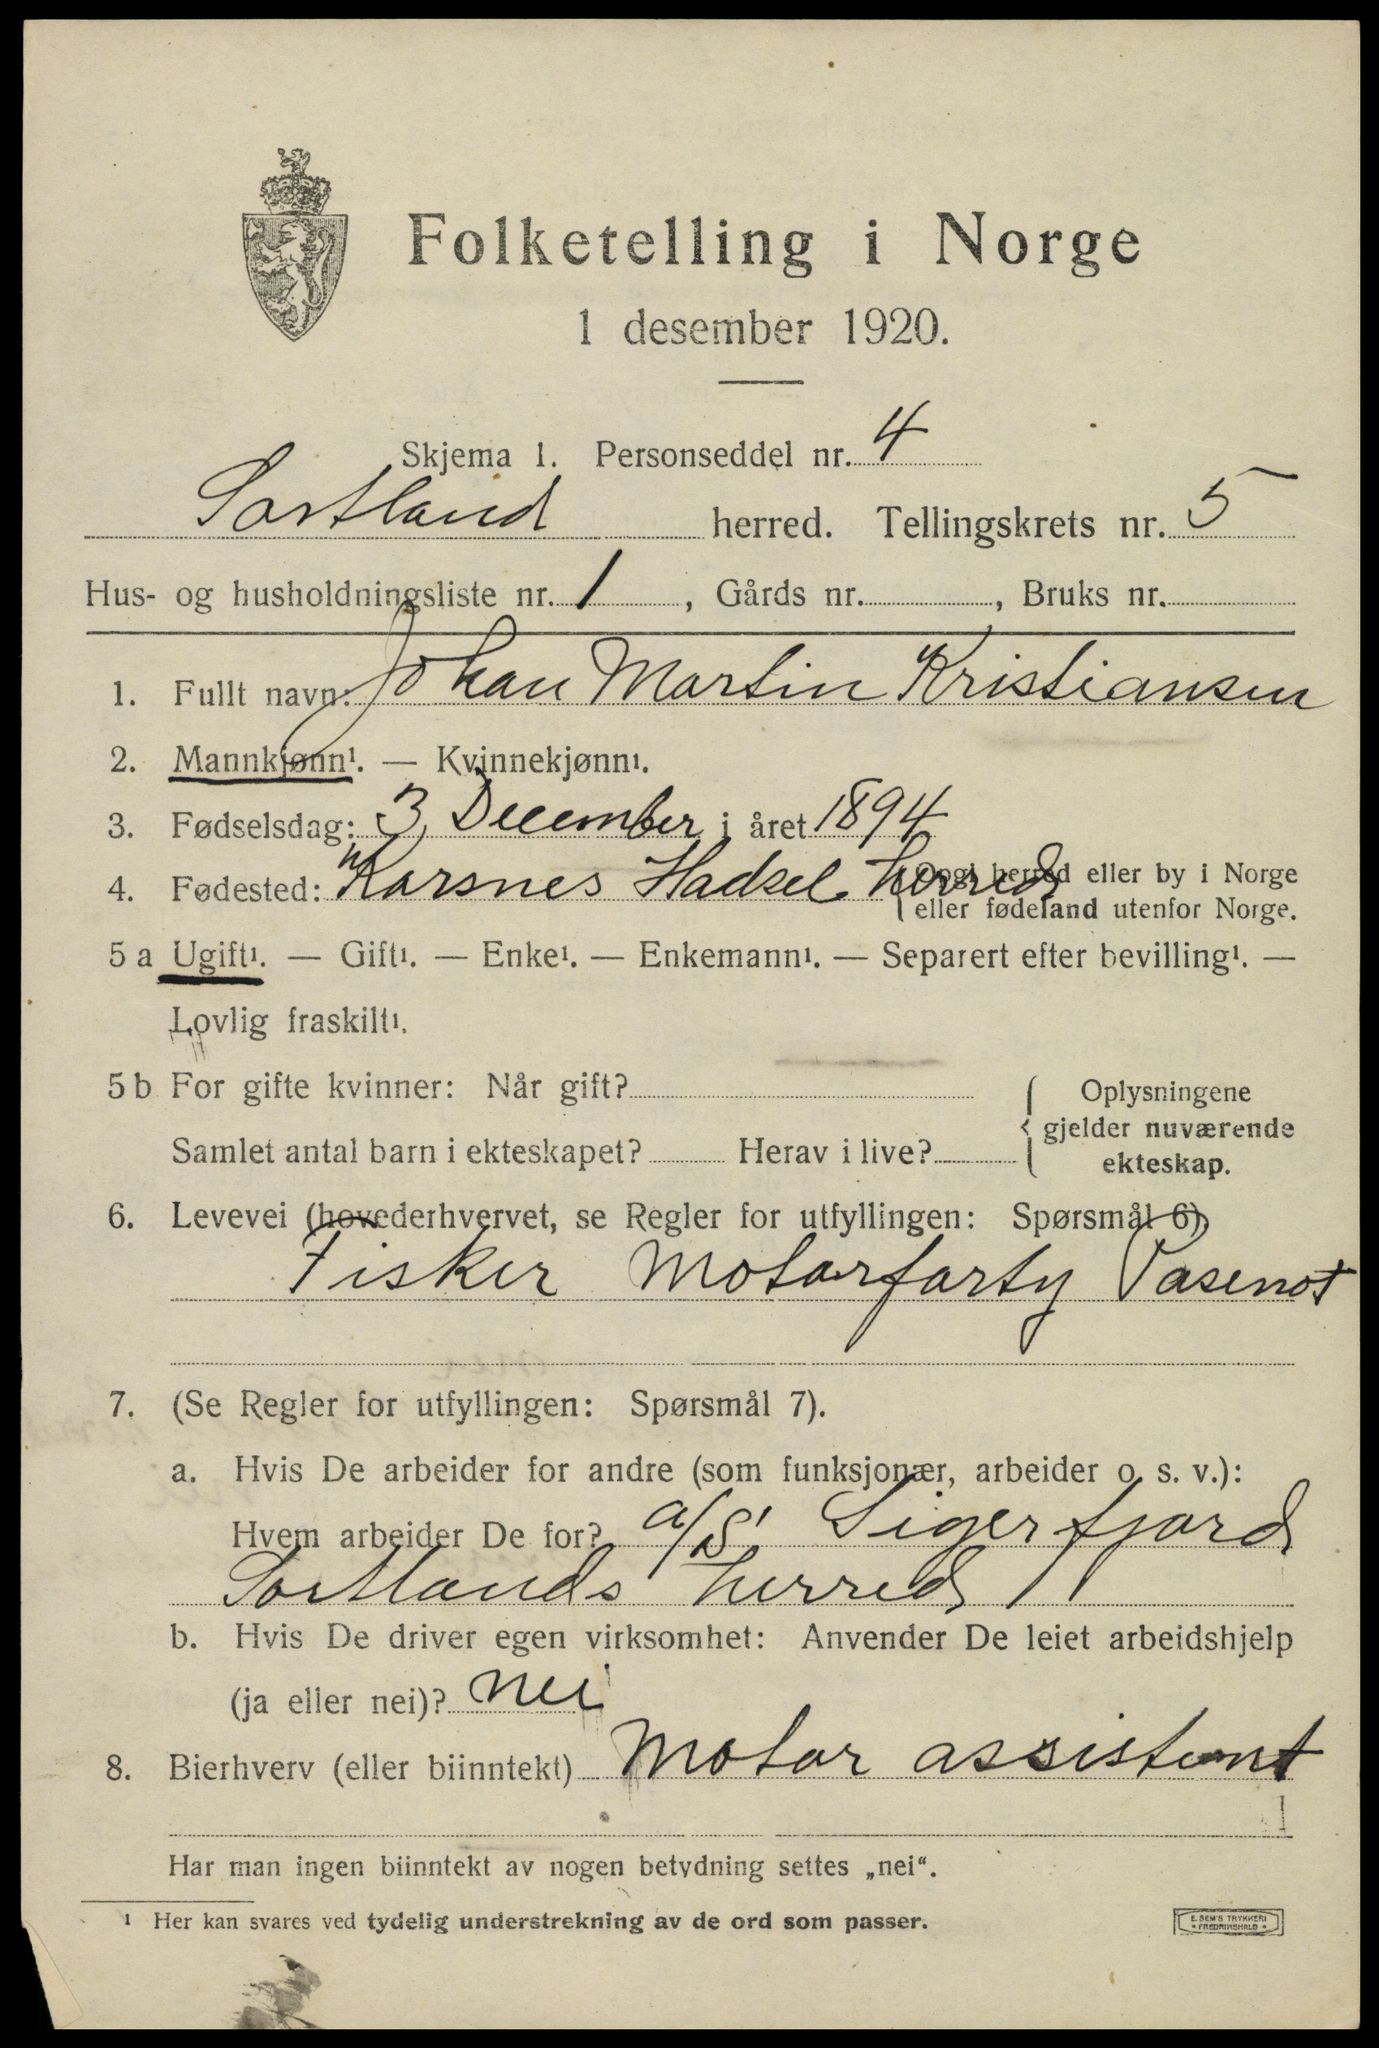 Folketelling i Norge
1 desember 1920.
Skjema 1. Personseddel nr. 4
Sortland herred. Tellingskrets nr. 5
Hus- og husholdningsliste nr. 1, Gårds nr. , Bruks nr.
1. Fullt navn: Johan Martin Kristiansen
2. Mannkjønn¹. — Kvinnekjønn¹.
3. Fødselsdag: 3 December i året 1894
4. Fødested: Karsnes Hadsel herred { Opgi herred eller by i Norge
eller fødeland utenfor Norge.
5 a Ugift¹. — Gift¹. — Enke¹. — Enkemann¹. — Separert efter bevilling¹. —
Lovlig fraskilt¹.
5 b For gifte kvinner: Når gift? { Oplysningene
gjelder nuværende
Samlet antal barn i ekteskapet? Herav i live? ekteskap.
6. Levevei (hovederhvervet, se Regler for utfyllingen: Spørsmål 6)
Fisker Motorfarty Pasenot
7. (Se Regler for utfyllingen: Spørsmål 7).
a. Hvis De arbeider for andre (som funksjonær, arbeider o. s. v.):
Hvem arbeider De for? a/S Sigerfjord
Sortlands herred
b. Hvis De driver egen virksomhet: Anvender De leiet arbeidshjelp
(ja eller nei)? nei
8. Bierhverv (eller biinntekt) Motor assistent
Har man ingen biinntekt av nogen betydning settes „nei“.
¹ Her kan svares ved tydelig understrekning av de ord som passer.
E. SEM'S TRYKKERI
* FREDRIKSHALD *